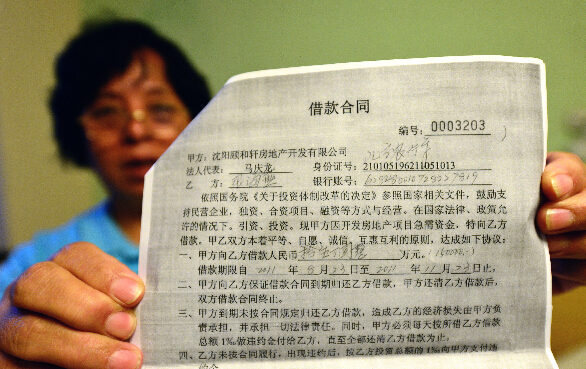 借款合同
编号：0003203
甲方：沈阳颐和轩房地产开发有限公司
法人代表：马庆龙 身份证号：210105196211051013
乙 方： 银行账号：
依照国务院《关于投资体制改革的决定》参照国家相关文件，鼓励支
持民营企业，独资、合资项目、融资等方式与经营。在国家法律、政策允
许的情况下。引资、投资。现甲方因开发房地产项目急需资金，特向乙方
借款。甲乙双方本着平等、自愿、诚信、互惠互利的原则，达成如下协议：
一、甲方向乙方借款人民币 万元。
借款期限自 2011 年 8 月 23 日至 2011 年 11 月 23 日止。
二、甲方向乙方保证借款合同到期归还乙方借款，甲方还清乙方借款后，
双方借款合同终止。
三、甲方到期未按合同规定归还乙方借款，造成乙方的经济损失由甲方负
责承担，并承担一切法律责任。同时，甲方必须每天按所借乙方借款
总额1‰做违约金付给乙方，直至全部还清乙方借款为止。
四、乙方未按合同履行，出现违约后，按乙方投资总额的1‰向甲方支付违
约金